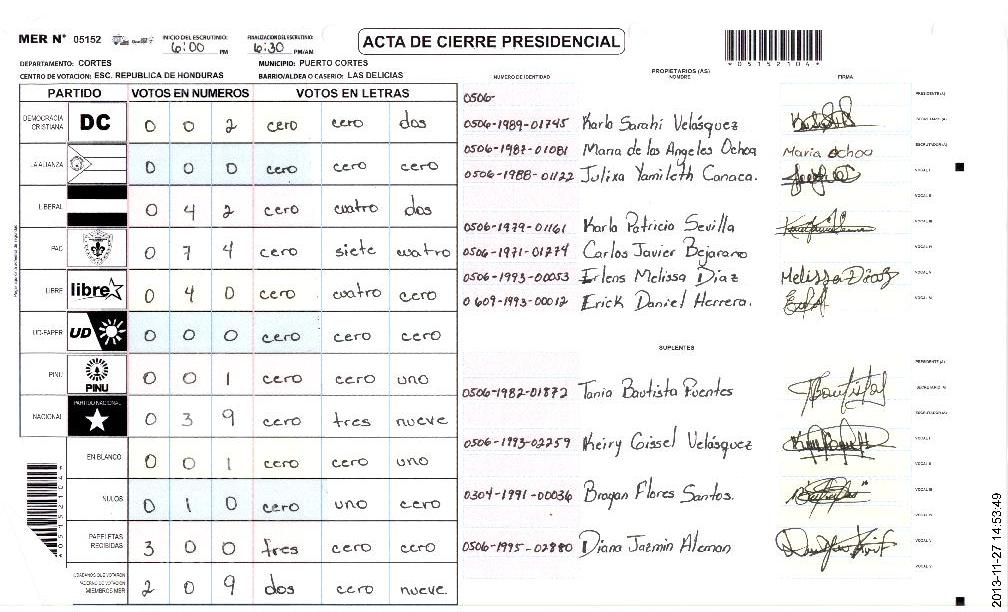 MER N° 05152
INICIO DEL ESCRUTINIO: 6:00 PM
FINALIZACION DEL ESCRUTINIO: 6:30 PM/AM
ACTA DE CIERRE PRESIDENCIAL
*05152104*
DEPARTAMENTO: CORTES
MUNICIPIO: PUERTO CORTES
CENTRO DE VOTACION: ESC. REPUBLICA DE HONDURAS
BARRIO/ALDEA O CASERIO: LAS DELICIAS
PARTIDO VOTOS EN NUMEROS VOTOS EN LETRAS
DEMOCRACIA CRISTIANA DC 0 0 2 cero cero dos
LA ALIANZA 0 0 0 cero cero cero
LIBERAL 0 4 2 cero cuatro dos
PAC 0 7 4 cero siete cuatro
LIBRE libre 0 4 0 cero cuatro cero
UD-FAPER UD 0 0 0 cero cero cero
PINU PINU 0 0 1 cero cero uno
NACIONAL PARTIDO NACIONAL 0 3 9 cero tres nueve
EN BLANCO 0 0 1 cero cero uno
NULOS 0 1 0 cero uno cero
PAPELETAS RECIBIDAS 3 0 0 tres cero cero
MIEMBROS MER 2 0 9 dos cero nueve
NUMERO DE IDENTIDAD
PROPIETARIOS (AS)
NOMBRE
FIRMA
0506-
PRESIDENTE(A)
0506-1989-01745 Karla Sarahi Velásquez
0506-1987-01081 Maria de los Angeles Ochoa Maria Ochoa
0506-1988-01122 Julixa Yamileth Canaca.
0506-1979-01161 Karla Patricia Sevilla
0506-1971-01274 Carlos Javier Bejarano
0506-1993-00053 Erlens Melissa Diaz Melissa Diaz
0609-1993-00012 Erick Daniel Herrera.
SUPLENTES
PRESIDENTE(A)
0506-1982-01872 Tania Bautista Puentes
0506-1993-02259 Keiry Goissel Velásquez
0304-1991-00036 Brayan Flores Santos.
0506-1995-02880 Diana Jazmin Aleman
2013-11-27 14:53:49